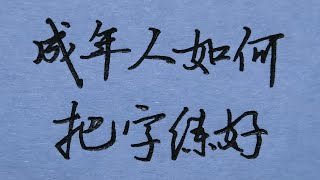 成年人如何
把字练好